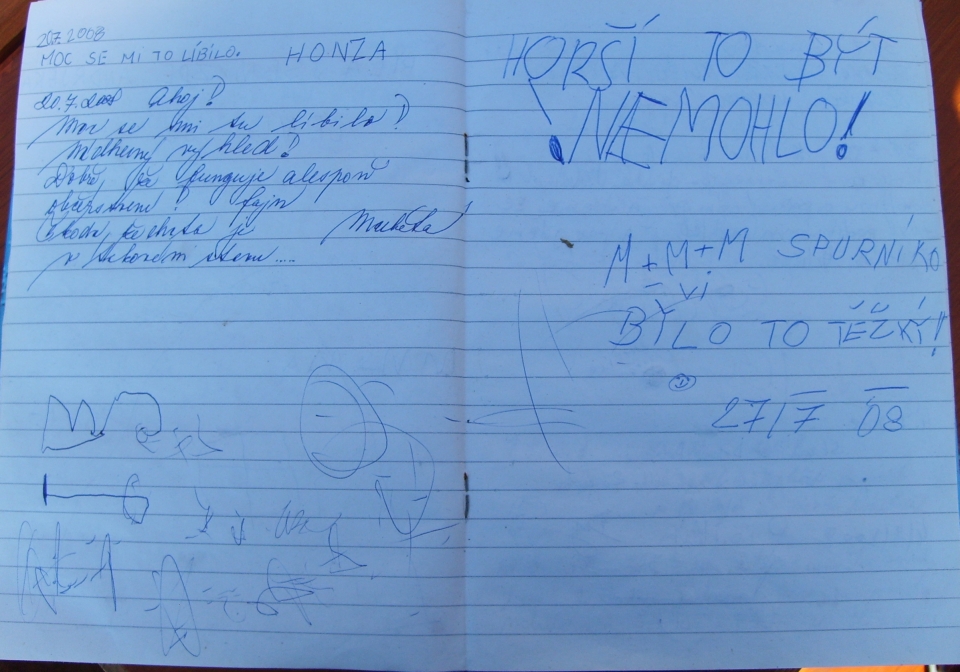 20.7.2008
MOC SE MI TO LÍBILO. HONZA
20.7.2008 Ahoj!
Moc se mi tu líbilo!
Nádherný výhled!
Dobře, že funguje alespoň
občerstvení! fajn
Škoda, že chata je Markéta
v takovém stavu....
HORŠÍ TO BÝT
!NEMOHLO!
M+M+M SPURNÍKO
VI
BYLO TO TĚŽKÝ!
27/7 08